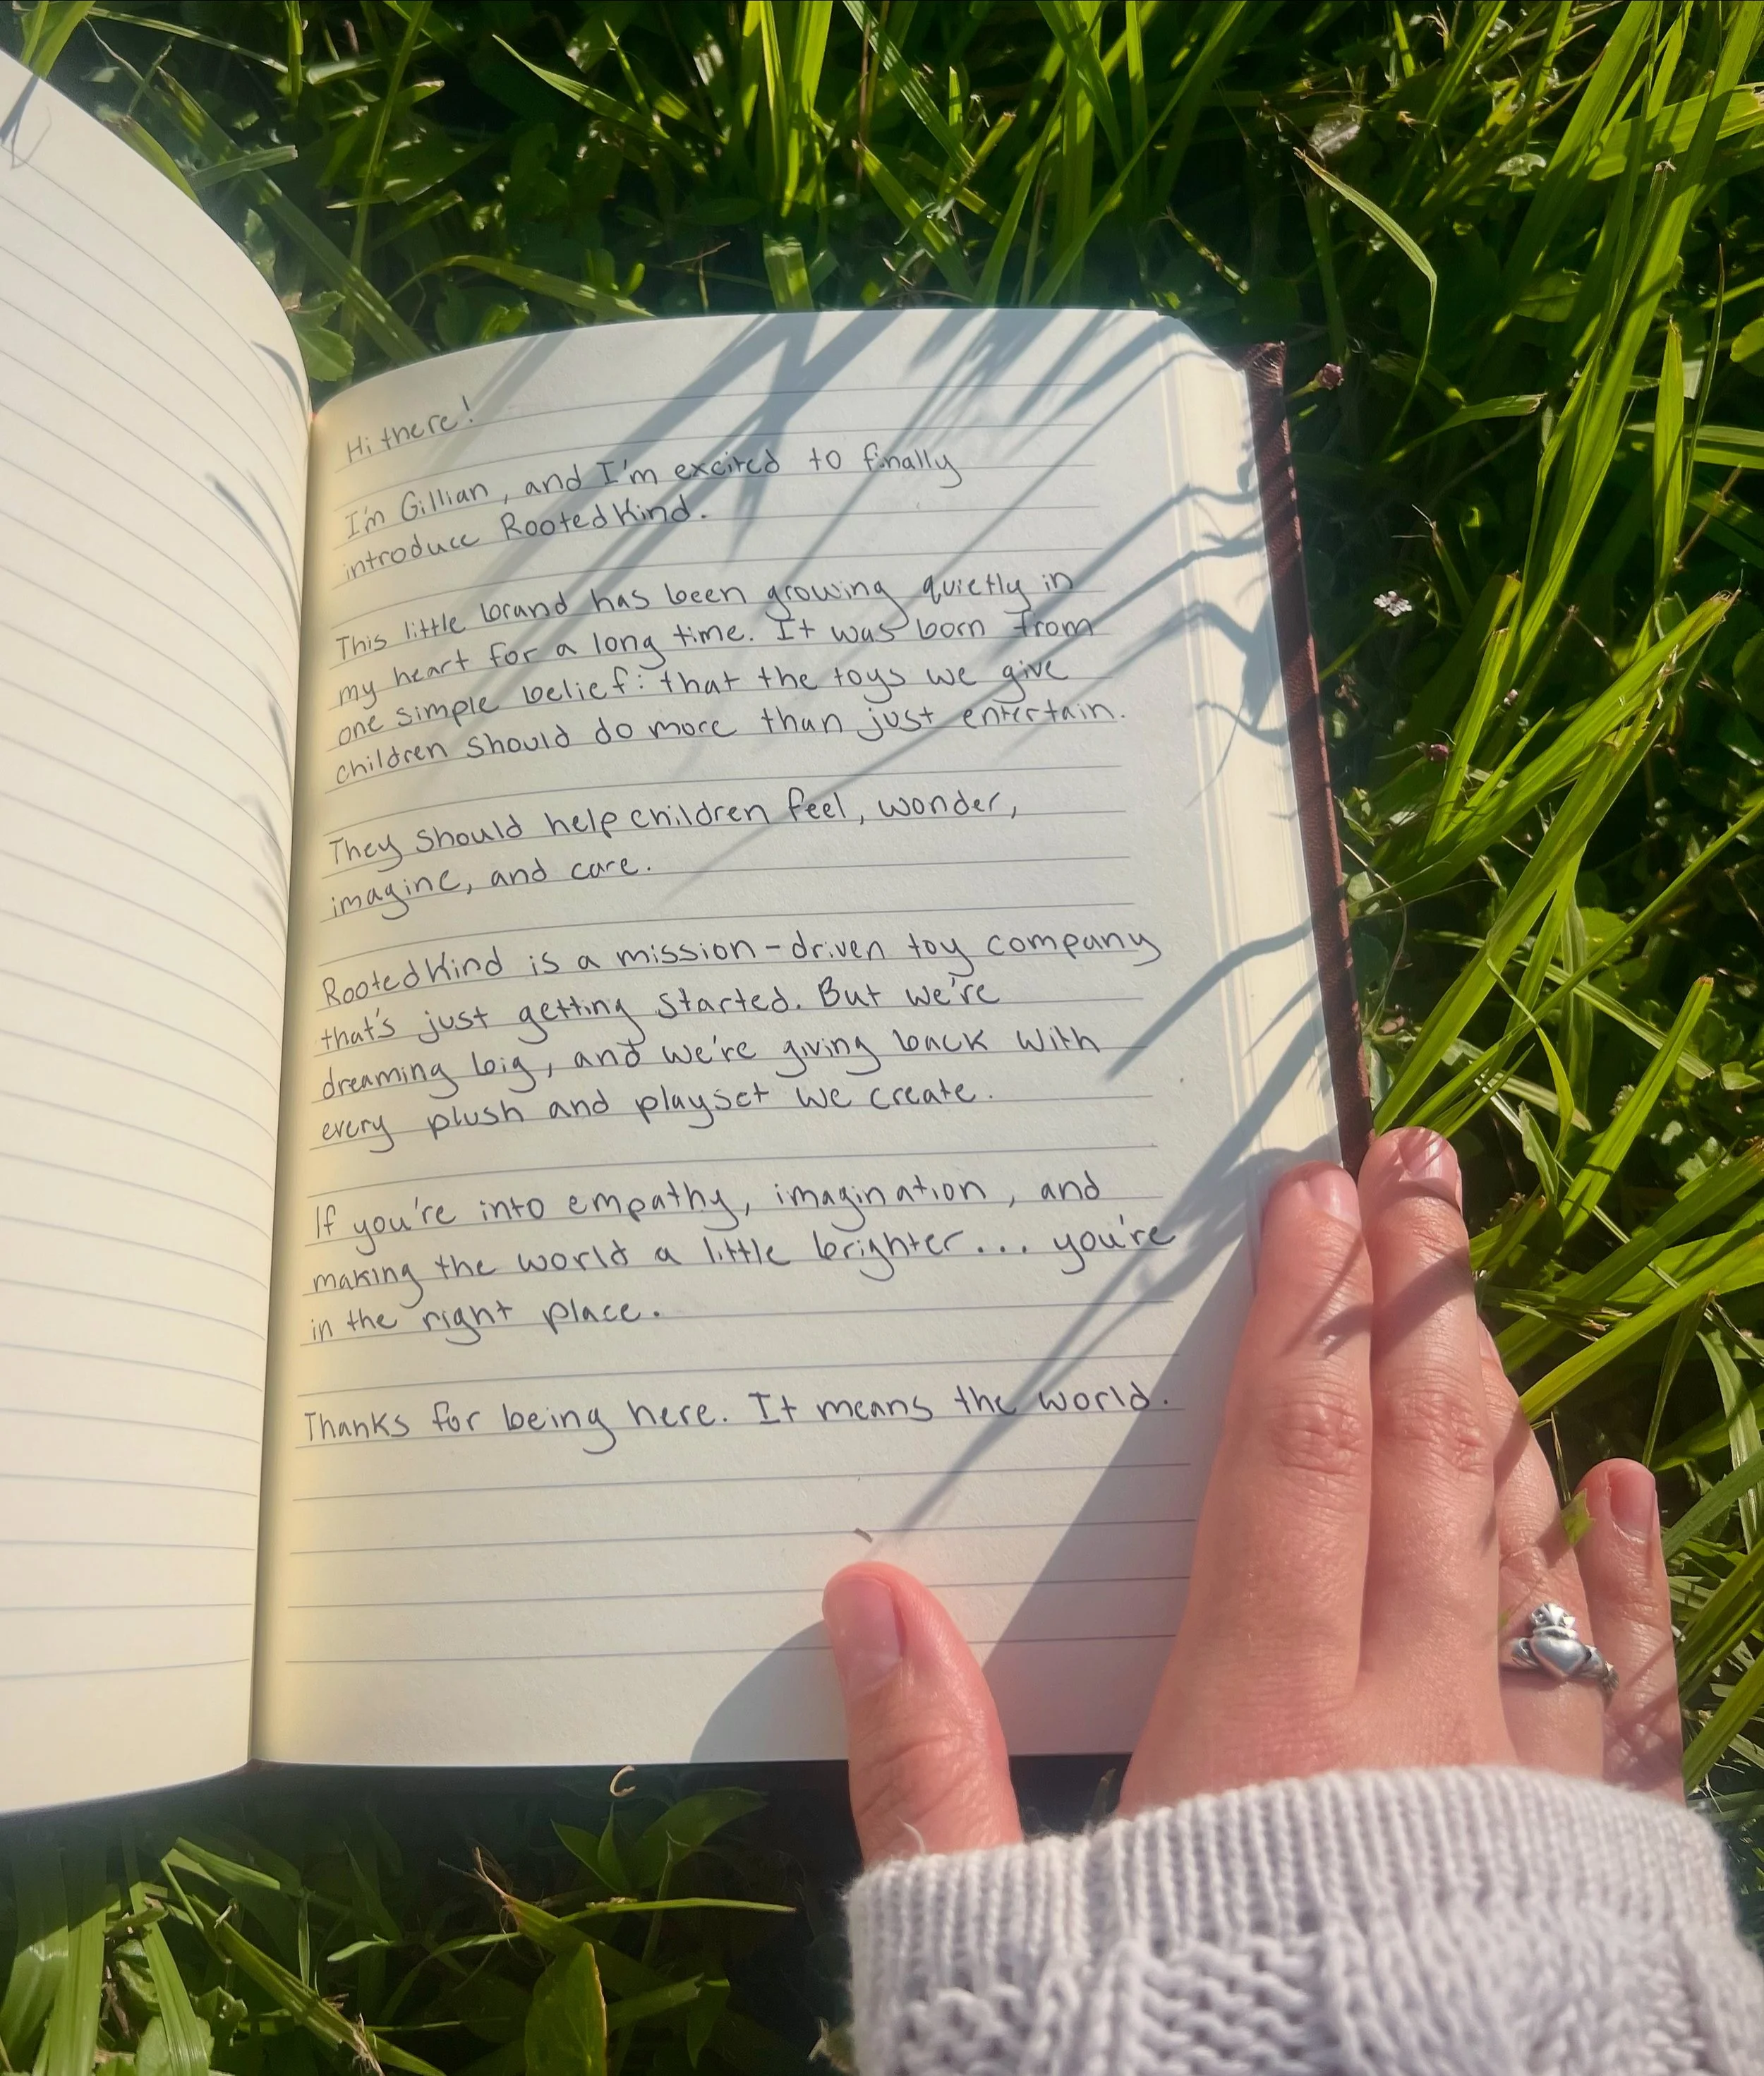 Hi there!
I'm Gillian, and I'm excited to finally
introduce RootedKind.
This little brand has been growing quietly in
my heart for a long time. It was born from
one simple belief: that the toys we give
children should do more than just entertain.
They should help children feel, wonder,
imagine, and care.
RootedKind is a mission-driven toy company
that's just getting started. But we're
dreaming big, and we're giving back with
every plush and playset we create.
If you're into empathy, imagination, and
making the world a little brighter... you're
in the right place.
Thanks for being here. It means the world.